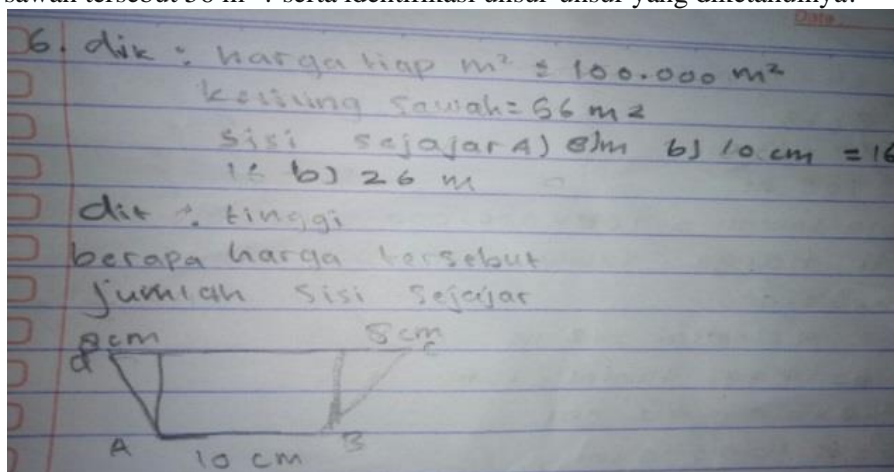 sawah tersebut 56 m² ? serta identifikasi unsur-unsur yang diketahuinya!
Date
6. dik : harga tiap m² = 100.000 m²
keliling sawah = 56 m2
sisi sejajar A) 8)m b) 10 cm = 16
16 b) 26 m
dit : tinggi
berapa harga tersebut
jumlah sisi sejajar
8 cm 8 cm
d C
A B
10 cm